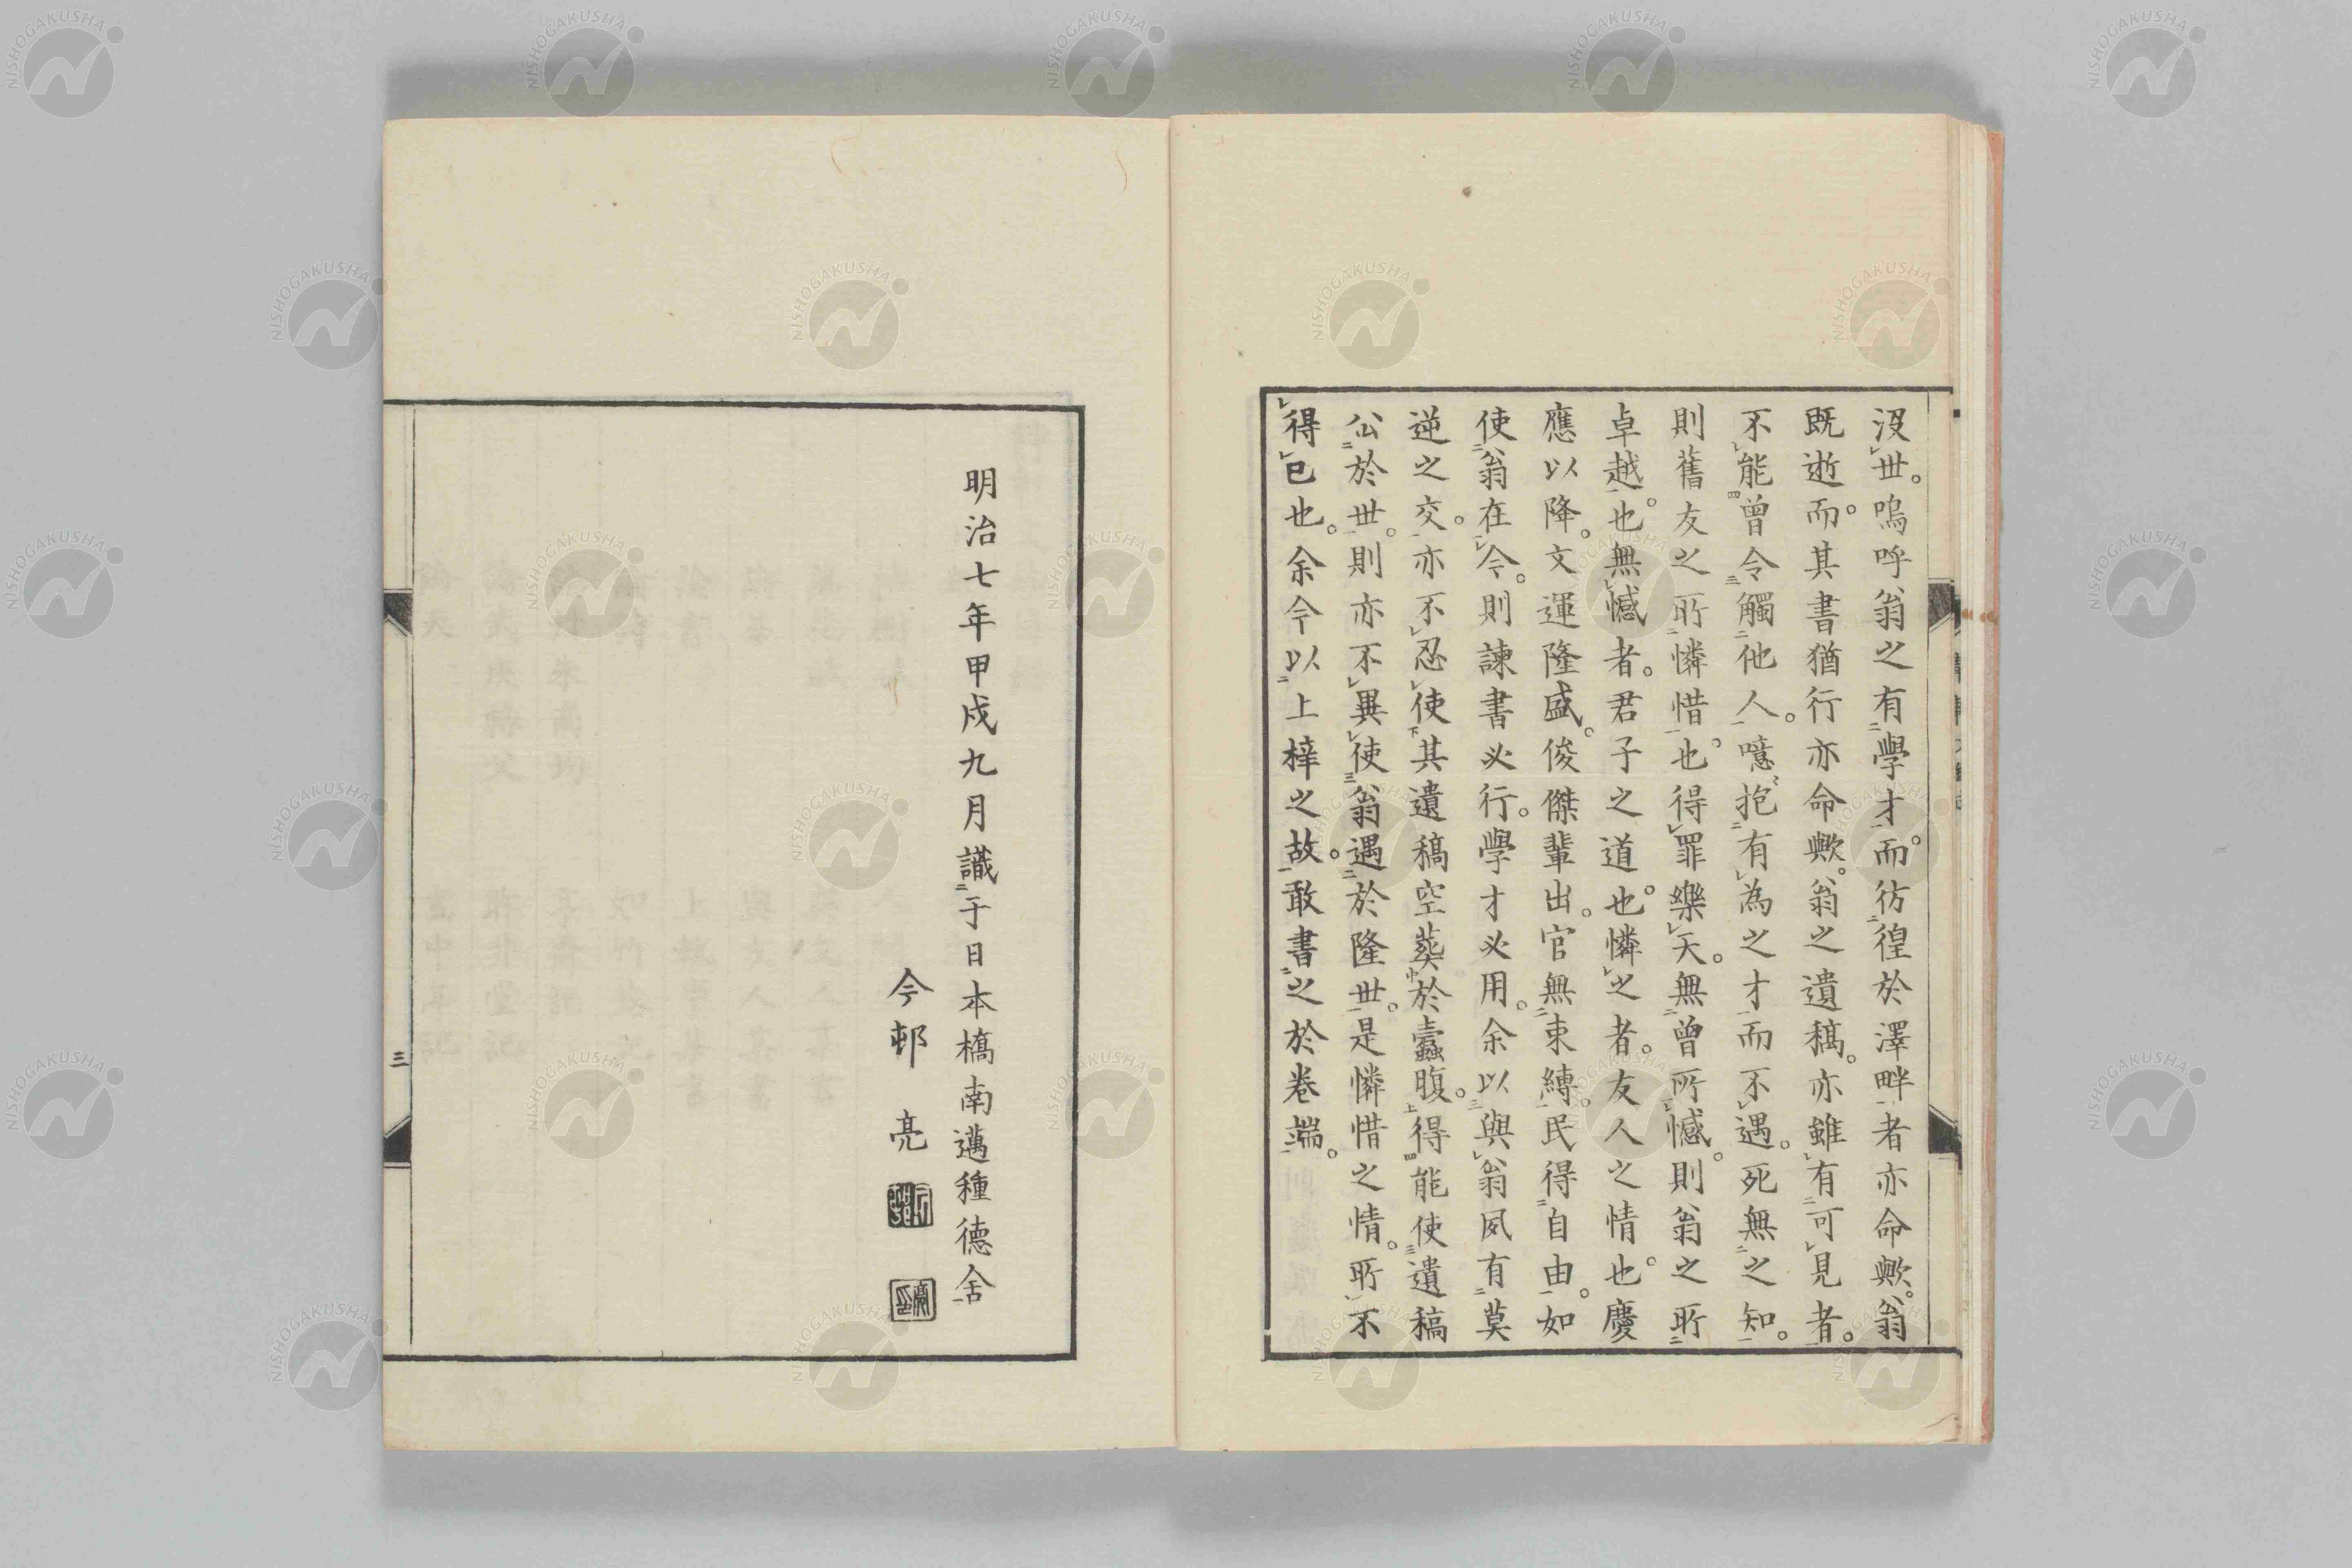 沒世。嗚呼翁之有學才。而彷徨於澤畔者亦命歟。翁
既逝而。其書猶行亦命歟。翁之遺稿。亦雖有可見者。
不能曾令觸他人。噫抱有為之才而不遇。死無之知。
則舊友之所憐惜也。得罪樂天。無曾所憾。則翁之所
卓越也。無憾者。君子之道也。憐之者。友人之情也。慶
應以降。文運隆盛。俊傑輩出。官無束縛。民得自由。如
使翁在今。則諫書必行。學才必用。余以與翁夙有莫
逆之交。亦不忍使其遺稿空葬於蠹腹。得能使遺稿
公於世。則亦不異使翁遇於隆世。是憐惜之情。所不
得已也。余今以上梓之故。敢書之於卷端。
明治七年甲戌九月識于日本橋南邁種德舍
今邨亮
三
NISHOGAKUSHA